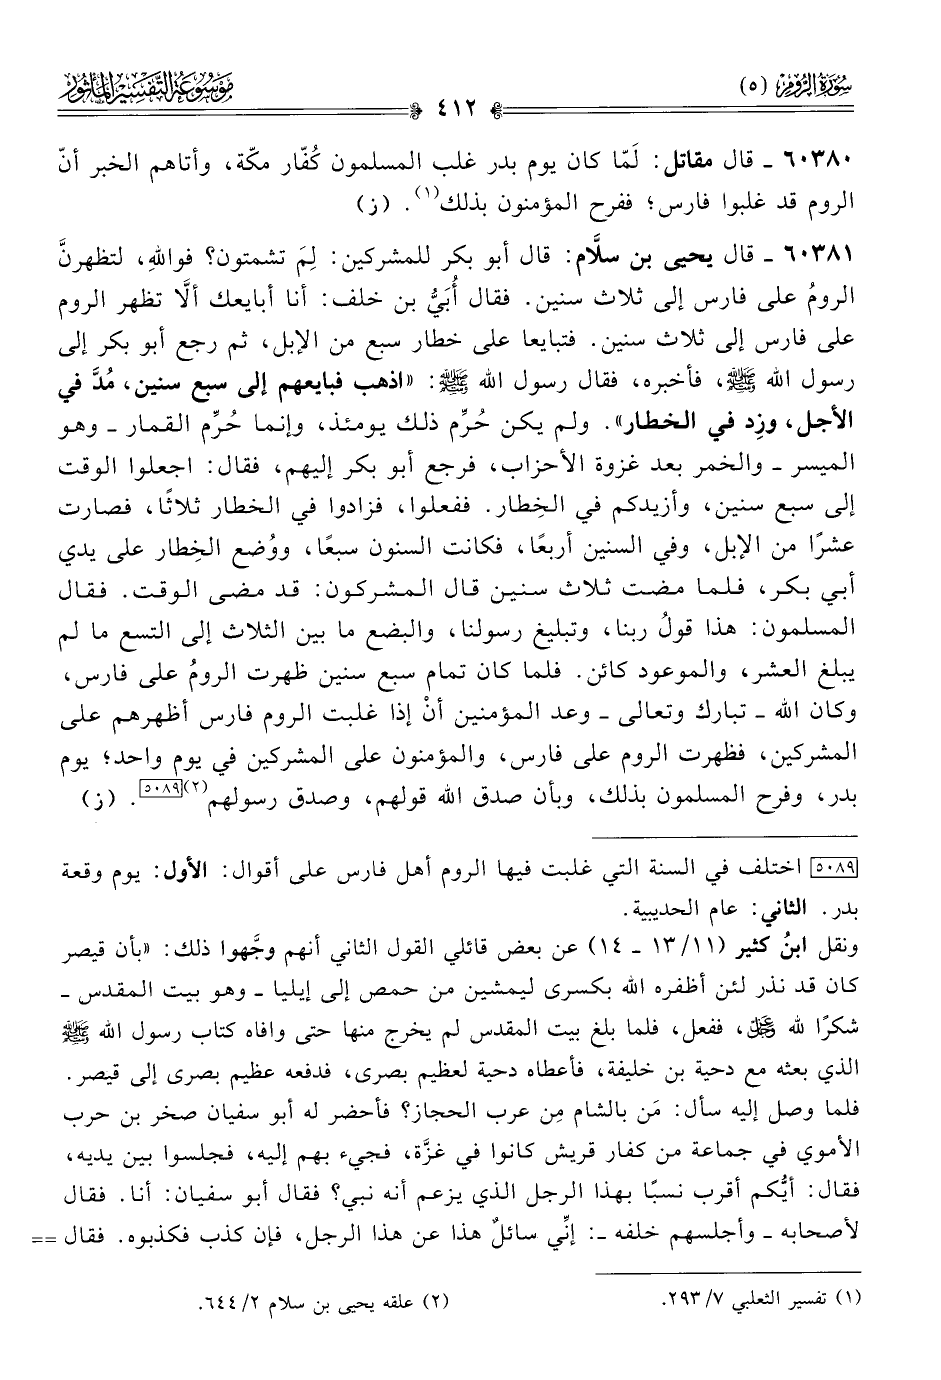 سُورَةُ الرُّومِ (٥)
٤١٢
مَوْسُوعَةُ التَّفْسِيرِ المَأْثُورِ
٦٠٣٨٠ ـ قال مقاتل: لَمّا كان يوم بدر غلب المسلمون كُفّار مكّة، وأتاهم الخبر أنّ
الروم قد غلبوا فارس؛ ففرح المؤمنون بذلك(١). (ز)
٦٠٣٨١ ـ قال يحيى بن سلَّام: قال أبو بكر للمشركين: لِمَ تشمتون؟ فواللهِ، لتظهرنَّ
الرومُ على فارس إلى ثلاث سنين. فقال أُبَيُّ بن خلف: أنا أبايعك ألَّا تظهر الروم
على فارس إلى ثلاث سنين. فتبايعا على خطار سبع من الإبل، ثم رجع أبو بكر إلى
رسول الله ﷺ، فأخبره، فقال رسول الله ﷺ: «اذهب فبايعهم إلى سبع سنين، مُدَّ في
الأجل، وزِد في الخطار». ولم يكن حُرِّم ذلك يومئذ، وإنما حُرِّم القمار ـ وهو
الميسر ـ والخمر بعد غزوة الأحزاب، فرجع أبو بكر إليهم، فقال: اجعلوا الوقت
إلى سبع سنين، وأزيدكم في الخِطار. ففعلوا، فزادوا في الخطار ثلاثًا، فصارت
عشرًا من الإبل، وفي السنين أربعًا، فكانت السنون سبعًا، ووُضع الخِطار على يدي
أبي بكر، فلما مضت ثلاث سنين قال المشركون: قد مضى الوقت. فقال
المسلمون: هذا قولُ ربنا، وتبليغ رسولنا، والبضع ما بين الثلاث إلى التسع ما لم
يبلغ العشر، والموعود كائن. فلما كان تمام سبع سنين ظهرت الرومُ على فارس،
وكان الله ـ تبارك وتعالى ـ وعد المؤمنين أنْ إذا غلبت الروم فارس أظهرهم على
المشركين، فظهرت الروم على فارس، والمؤمنون على المشركين في يوم واحد؛ يوم
بدر، وفرح المسلمون بذلك، وبأن صدق الله قولهم، وصدق رسولهم(٢)[٥٠٨٩]. (ز)
[٥٠٨٩] اختلف في السنة التي غلبت فيها الروم أهل فارس على أقوال: الأول: يوم وقعة
بدر. الثاني: عام الحديبية.
ونقل ابنُ كثير (١١/ ١٣ ـ ١٤) عن بعض قائلي القول الثاني أنهم وجَّهوا ذلك: «بأن قيصر
كان قد نذر لئن أظفره الله بكسرى ليمشين من حمص إلى إيليا ـ وهو بيت المقدس ـ
شكرًا لله ﷿، ففعل، فلما بلغ بيت المقدس لم يخرج منها حتى وافاه كتاب رسول الله ﷺ
الذي بعثه مع دحية بن خليفة، فأعطاه دحية لعظيم بصرى، فدفعه عظيم بصرى إلى قيصر.
فلما وصل إليه سأل: مَن بالشام مِن عرب الحجاز؟ فأحضر له أبو سفيان صخر بن حرب
الأموي في جماعة من كفار قريش كانوا في غزَّة، فجيء بهم إليه، فجلسوا بين يديه،
فقال: أيُّكم أقرب نسبًا بهذا الرجل الذي يزعم أنه نبي؟ فقال أبو سفيان: أنا. فقال
لأصحابه ـ وأجلسهم خلفه ـ: إنِّي سائلٌ هذا عن هذا الرجل، فإن كذب فكذبوه. فقال ==
(١) تفسير الثعلبي ٧/ ٢٩٣.
(٢) علقه يحيى بن سلام ٢/ ٦٤٤.